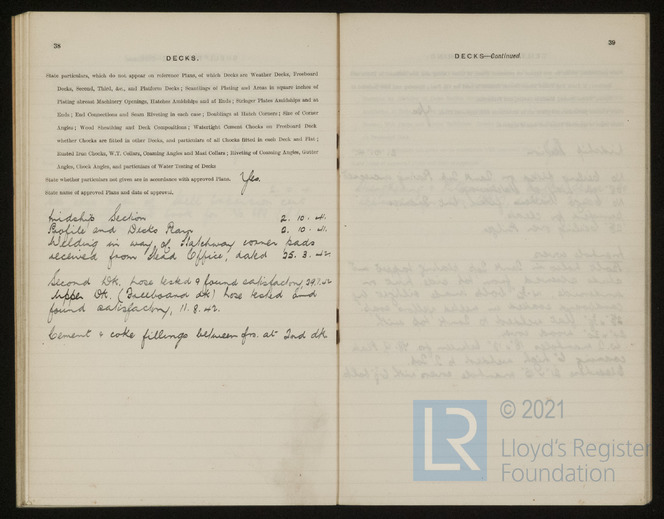 38
DECKS.
State particulars, which do not appear on reference Plans, of which Decks are Weather Decks, Freeboard
Decks, Second, Third, &c., and Platform Decks; Scantlings of Plating and Areas in square inches of
Plating abreast Machinery Openings, Hatches Amidships and at Ends; Stringer Plates Amidships and at
Ends; End Connections and Seam Riveting in each case; Doublings at Hatch Corners; Size of Corner
Angles; Wood Sheathing and Deck Compositions; Watertight Cement Chocks on Freeboard Deck
whether Chocks are fitted in other Decks, and particulars of all Chocks fitted in each Deck and Flat;
Rusted Iron Chocks, W.T. Collars, Coaming Angles and Mast Collars; Riveting of Coaming Angles, Gutter
Angles, Chock Angles, and particulars of Water Testing of Decks
State whether particulars not given are in accordance with approved Plans. Yes.
State name of approved Plans and date of approval.
Midship Section 2. 10. 41.
Profile and Decks Plan 2. 10. 41.
Welding in way of Hatchway corner pads
received from Head Office, dated 25. 3. 42.
Second Dk. hose tested & found satisfactory, 29.7.42
Upper Dk. (Freeboard dk) hose tested and
found satisfactory, 11. 8. 42.
Cement & coke fillings between frs. at 2nd dk
39
DECKS—Continued.
LR
© 2021
Lloyd's Register
Foundation